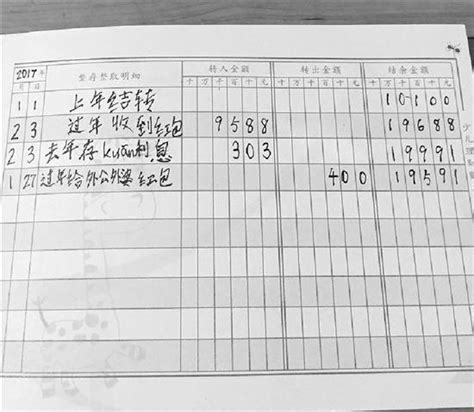 2017年 整存整取明细 转入金额 转出金额 结余金额
月 日 十 万 千 百 十 元 十 万 千 百 十 元 十 万 千 百 十 元
1 1 上年结转 10100
2 3 过年收到红包 9588 19688
2 3 去年存kuǎn利息 303 19991
1 27 过年给外公外婆红包 400 19591
少儿理